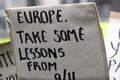 EUROPE.
TAKE SOME
LESSONS
FROM
9/11